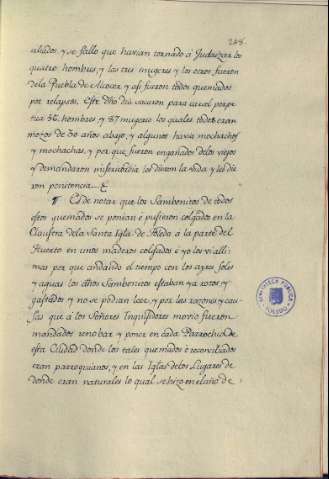 248.
aliados y se fallo que havian tornado á Judaizar los
quatro hombres, y las tres mugeres y los otros fueron
dela Puebla de Alcocer y asi fueron todos quemados
por relapsos. Este dho dia sacaron para carcel perpe
tua 56. hombres y 87 mugeres los quales todos eran
mozos de 30 años abajo, y algunos havia mochachos
y mochachas, y por que fueron engañados delos viejos
y demandaron misericordia les dieron la vida y les die
ron penitencia.
¶ Es de notar que los Sambenitos de todos
estos quemados se ponian é pusieron colgados en la
Claustra dela Santa Iglª de Toledo á la parte del
Huerto en unos maderos colgados é yo los vi alli
mas por que andando el tiempo con los ayres, soles
y aguas los dhos Sambenitos estaban ya rotos y
gastados y no se podian leer, y por las razones y cau
sas que á los Señores Inquisidores movio fueron
mandados renobar y poner en cada Parrochia de
esta Ciudad donde los tales quemados é reconciliados
eran parroquianos, y en las Iglªs delos Lugares de
donde eran naturales lo qual se hizo en el año de
BIBLIOTECA PUBLICA
TOLEDO